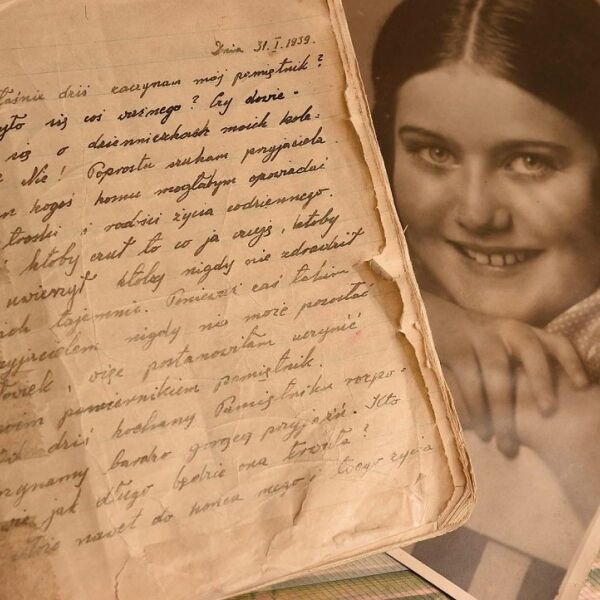 Dnia 31.I.1939.
właśnie dziś zaczynam mój pamiętnik?
się coś ważnego? Czy dowie-
się o dzienniczkach moich kole-
Nie! Poprostu szukam przyjaciela.
kogoś komu mogłabym opowiadać
troski i radości życia codziennego.
ktoby czuł to co ja czuję, ktoby
uwierzył ktoby nigdy nie zdradził
tajemnic. Ponieważ zaś takim
przyjacielem nigdy nie może pozostać
człowiek, więc postanowiłam uczynić
swoim powiernikiem pamiętnik.
dziś kochany Pamiętniku rozpo-
czynamy bardzo gorącą przyjaźń. Kto
wie jak długo będzie ona trwała?
może nawet do końca mego i twego życia